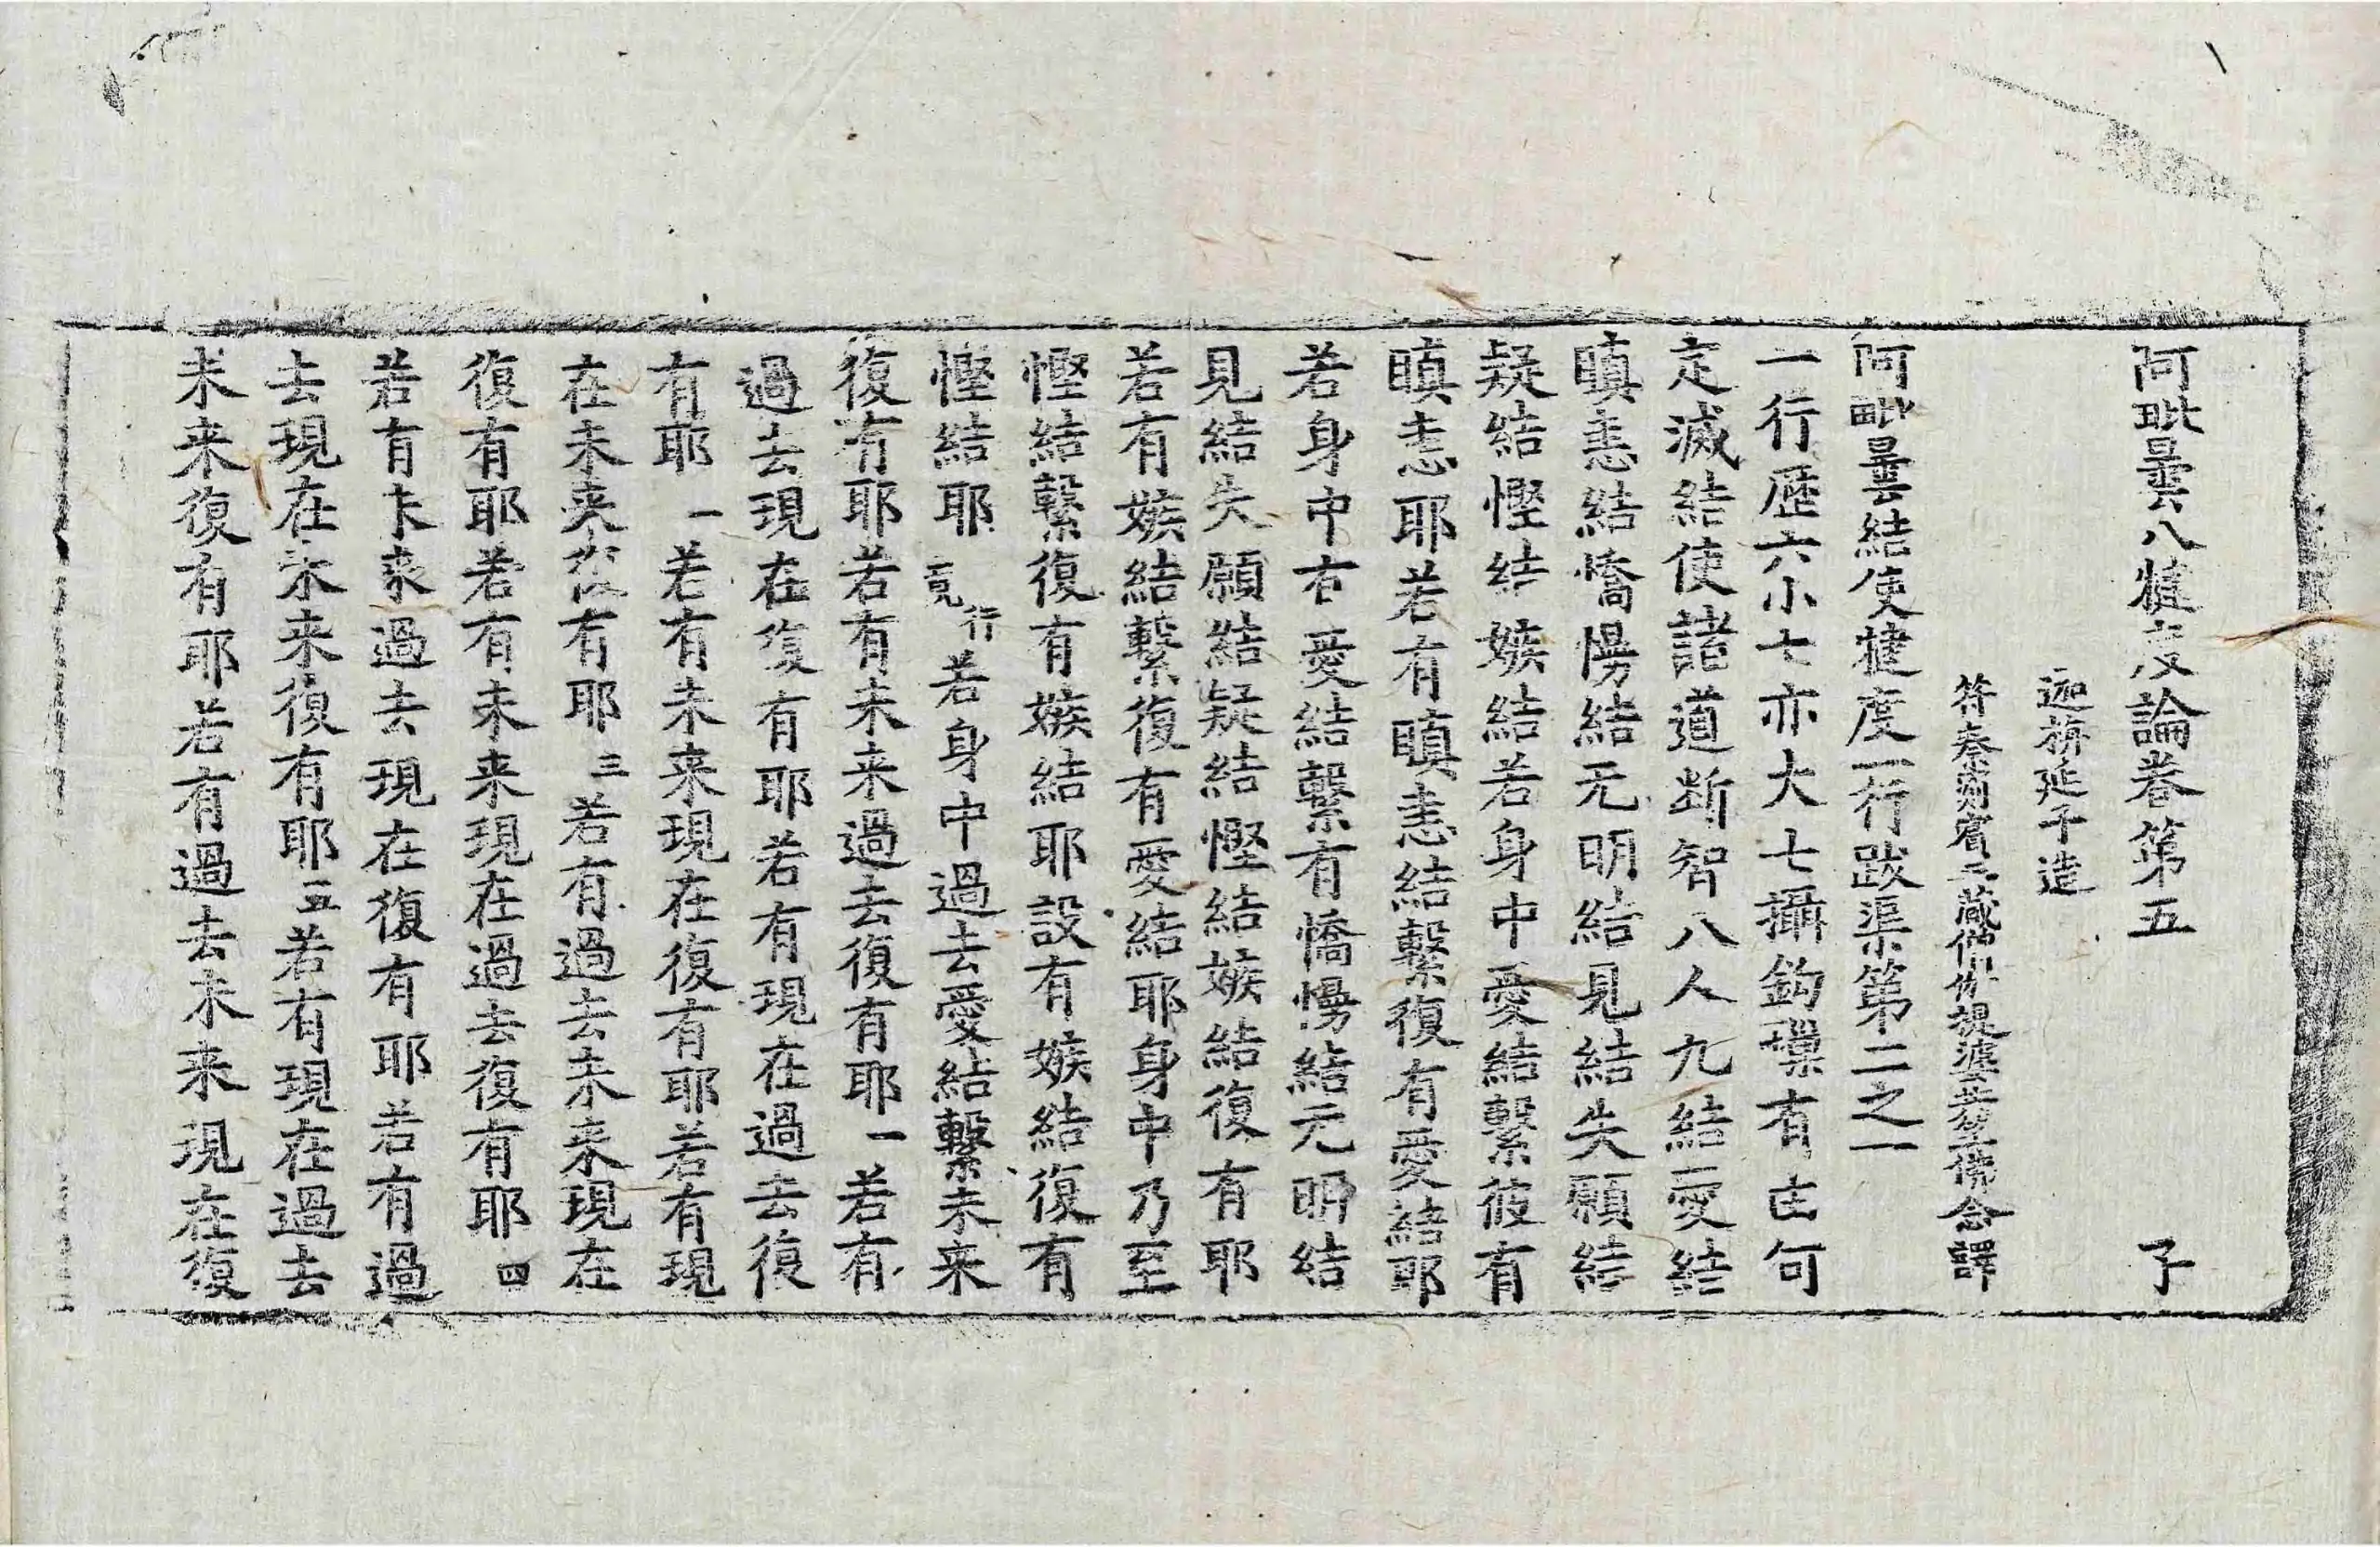 阿毗曇八犍度論卷第五 子
迦旃延子造
符秦罽賓三藏僧伽提婆共竺佛念譯
阿毗曇結使犍度一行跋渠第二之一
一行歷六小七亦大七攝鉤璅有七何
定滅結使諸道断智八人九結愛結
瞋恚結憍慢結无明結見結失願結
疑結慳結嫉結若身中愛結繫彼有
瞋恚耶若有瞋恚結繫復有愛結耶
若身中有愛結繫有憍慢結无明結
見結失願結疑結慳結嫉結復有耶
若有嫉結繫復有愛結耶身中乃至
慳結繫復有嫉結耶設有嫉結復有
慳結耶一行竟若身中過去愛結繫未来
復有耶若有未来過去復有耶一若有
過去現在復有耶若有現在過去復
有耶一若有未来現在復有耶若有現
在未来復有耶三若有過去未来現在
復有耶若有未来現在過去復有耶四
若有未来過去現在復有耶若有過
去現在未来復有耶五若有現在過去
未来復有耶若有過去未来現在復